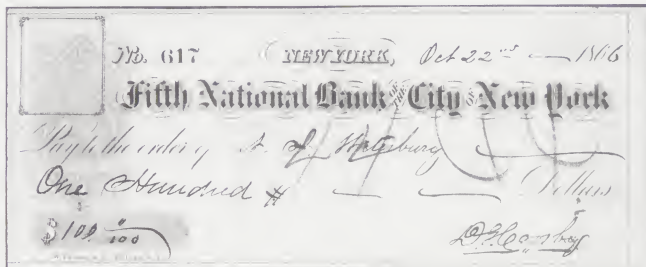 No. 617 NEW YORK, Oct 22nd — 1866
Fifth National Bank OF THE City OF New York
Pay to the order of
One Hundred — — Dollars
$100 "/100